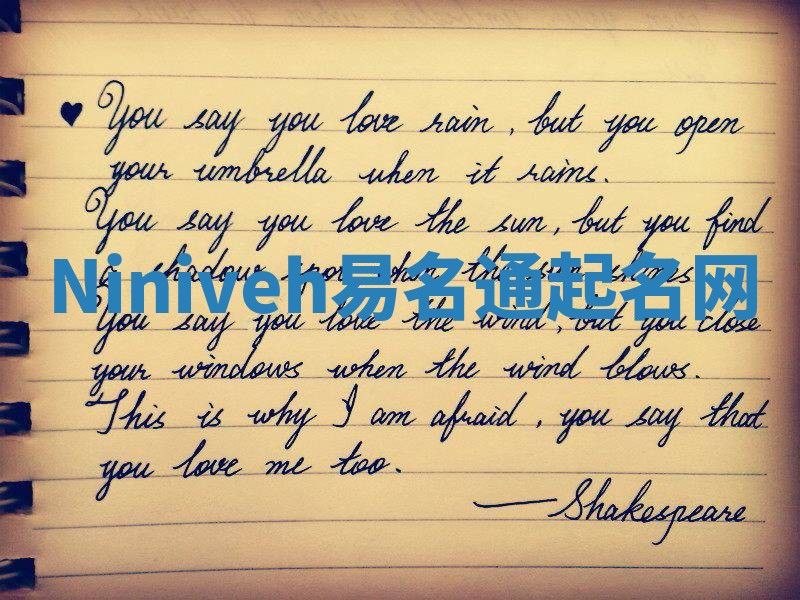 ♥ You say you love rain, but you open
your umbrella when it rains.
You say you love the sun, but you find
a shadow spot when the sun shines
Niniveh易名通起名网
You say you love the wind, but you close
your windows when the wind blows.
This is why I am afraid, you say that
you love me too.
—Shakespeare